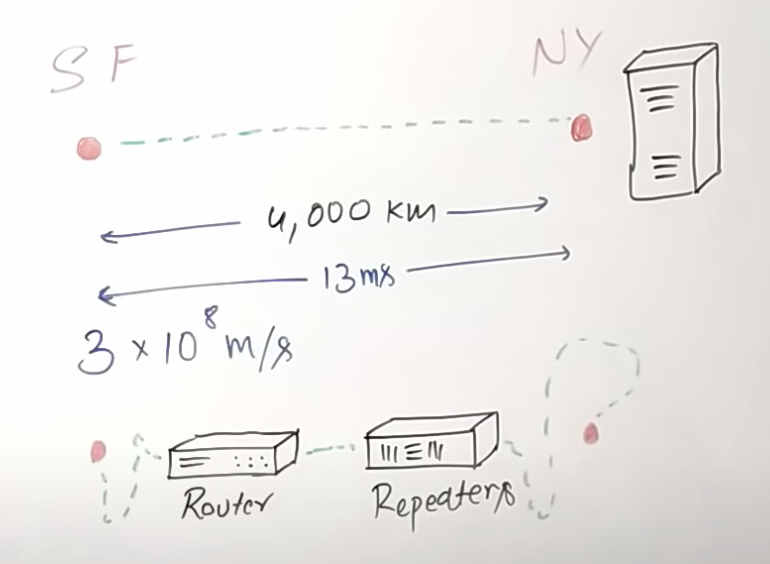 SF
NY
4,000 km
13ms
3 × 10⁸ m/s
Router
Repeaters